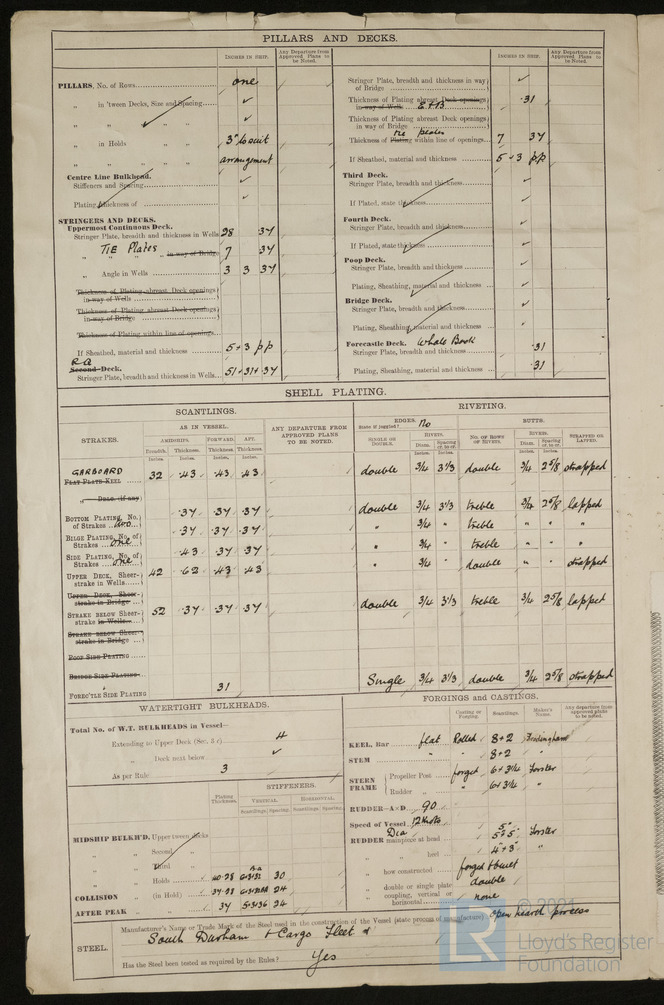 PILLARS AND DECKS.
INCHES IN SHIP.
Any Departure from Approved Plans to be Noted.
INCHES IN SHIP.
Any Departure from Approved Plans to be Noted.
PILLARS, No. of Rows one
" in 'tween Decks, Size and Spacing
" in Holds 3" to suit
" " " " arrangement
Centre Line Bulkhead.
Stiffeners and Spacing
Plating, thickness of
STRINGERS AND DECKS.
Uppermost Continuous Deck.
Stringer Plate, breadth and thickness in Wells 28 34
" TIE Plates " in way of Bridge 7 34
" Angle in Wells 3 3 34
Thickness of Plating abreast Deck openings in way of Wells
Thickness of Plating abreast Deck openings in way of Bridge
Thickness of Plating within line of openings
If Sheathed, material and thickness 5 × 3 pp
RQ
Second Deck.
Stringer Plate, breadth and thickness in Wells 51 × 31 × 34
Stringer Plate, breadth and thickness in way of Bridge
Thickness of Plating abreast Deck openings in way of Wells E & B .31
Thickness of Plating abreast Deck openings in way of Bridge
Tie plates
Thickness of Plating within line of openings 7 34
If Sheathed, material and thickness 5 × 3 pp
Third Deck.
Stringer Plate, breadth and thickness
If Plated, state thickness
Fourth Deck.
Stringer Plate, breadth and thickness
If Plated, state thickness
Poop Deck.
Stringer Plate, breadth and thickness
Plating, Sheathing, material and thickness
Bridge Deck.
Stringer Plate, breadth and thickness
Plating, Sheathing, material and thickness
Forecastle Deck. Whale Back
Stringer Plate, breadth and thickness .31
Plating, Sheathing, material and thickness .31
SHELL PLATING.
SCANTLINGS.
RIVETING.
STRAKES.
AS IN VESSEL.
ANY DEPARTURE FROM APPROVED PLANS TO BE NOTED.
EDGES. No
State if joggled?
BUTTS.
AMIDSHIPS. FORWARD. AFT.
Breadth. Thickness. Thickness. Thickness.
Inches. Inches. Inches. Inches.
SINGLE OR DOUBLE.
RIVETS.
Diam. Spacing cr. to cr.
No. OF ROWS OF RIVETS.
RIVETS.
Diam. Spacing cr. to cr.
STRAPPED OR LAPPED.
Inches. Inches. Inches. Inches.
GARBOARD 32 .43 .43 .43 double 3/4 3 1/3 double 3/4 2 5/8 strapped
FLAT PLATE KEEL
" DBLG. (if any)
BOTTOM PLATING, No. of Strakes two .34 .34 .34 double 3/4 3 1/3 treble 3/4 2 5/8 lapped
BILGE PLATING, No. of Strakes one .34 .34 .34 " 3/4 " treble " " "
SIDE PLATING, No. of Strakes one .43 .34 .34 " 3/4 " treble " " "
UPPER DECK, Sheer-strake in Wells 42 .62 .43 .43 " 3/4 " double " " strapped
UPPER DECK, Sheer-strake in Bridge
STRAKE BELOW Sheer-strake in Wells 52 .34 .34 .34 double 3/4 3 1/3 treble 3/4 2 5/8 lapped
STRAKE BELOW Sheer-strake in Bridge
POOP SIDE PLATING
BRIDGE SIDE PLATING
FORE'C'TLE SIDE PLATING 31 Single 3/4 3 1/3 double 3/4 2 5/8 strapped
WATERTIGHT BULKHEADS.
Total No. of W.T. BULKHEADS in Vessel—
Extending to Upper Deck (Sec. 3 c) 4
" Deck next below
As per Rule 3
Plating Thickness.
STIFFENERS.
VERTICAL. HORIZONTAL.
Scantlings. Spacing. Scantlings. Spacing.
MIDSHIP BULKH'D, Upper 'tween decks
" " Second "
" " Third "
" " Holds 30
COLLISION " (in Hold) 24
AFTER PEAK " " 34 24
FORGINGS and CASTINGS.
Casting or Forging.
Scantlings.
Maker's Name.
Any departure from approved plans to be noted.
KEEL, Bar flat Rolled 8 × 2 Frodingham
STEM " " 8 × 2 "
STERN FRAME
Propeller Post forged 6 × 3 1/4 Forster
Rudder " " 6 × 3 1/4 "
RUDDER—A × D 90
Speed of Vessel 12 Knots
RUDDER mainpiece at head Dia 5" Forster
" " heel 4" × 3" "
" how constructed forged
" double or single plate double
" coupling, vertical or horizontal none
STEEL.
Manufacturer's Name or Trade Mark of the Steel used in the construction of the Vessel (state process of manufacture) open hearth process
South Durham & Cargo Fleet
Has the Steel been tested as required by the Rules? Yes
© 2021
LR
Lloyd's Register
Foundation